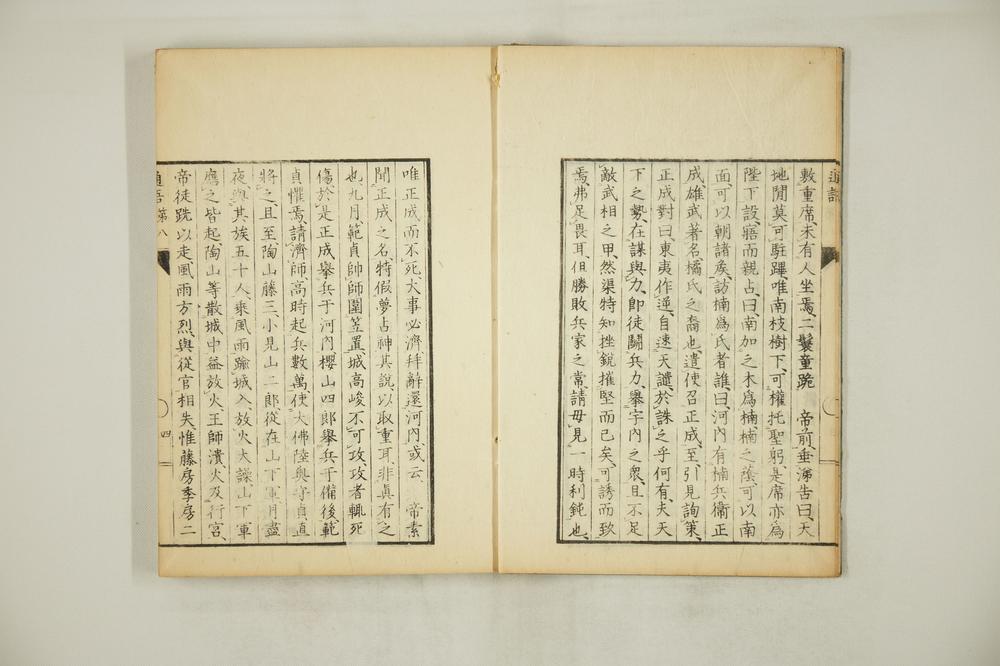 通語
敷重席、未有人坐焉、二鬟童跪 帝前、垂涕告曰、天
地間莫可駐蹕、唯南枝樹下、可權托聖躬、是席亦爲
陛下設、寤而親占曰、南加之木爲楠、楠之蔭、可以南
面、可以朝諸矦、訪楠爲氏者誰、曰、河內有楠兵衞正
成、雄武著名、橘氏之裔也、遣使召正成、至、引見詢策、
正成對曰、東夷作逆、自速天譴、於誅之乎何有、夫天
下之勢、在謀與力、即徒鬪兵力、擧宇內之衆、且不足
敵武相之甲、然渠特知挫銳摧堅而已矣、可誘而致
焉、弗足畏耳、但勝敗兵家之常、請毋見一時利鈍也、
唯正成而不死、大事必濟、拜辭還河內、或云 帝素
聞正成之名、特假夢占神其說、以取重耳、非眞有之
也、九月、範貞帥師圍笠置、城高峻不可攻、攻者輒死
傷、於是正成擧兵于河內、櫻山四郎擧兵于備後、範
貞懼焉、請濟師、高時起兵數萬、使大佛陸奧守貞直
將之、且至、陶山藤三、小見山二郎、從在山下軍、月盡
夜、與其族五十人、乘風雨踰城入、放火大譟、山下軍
應之皆起、陶山等散城中益放火、王師潰、火及行宮、
帝徒跣以走、風雨方烈、與從官相失、惟藤房季房二
通語 第八
四